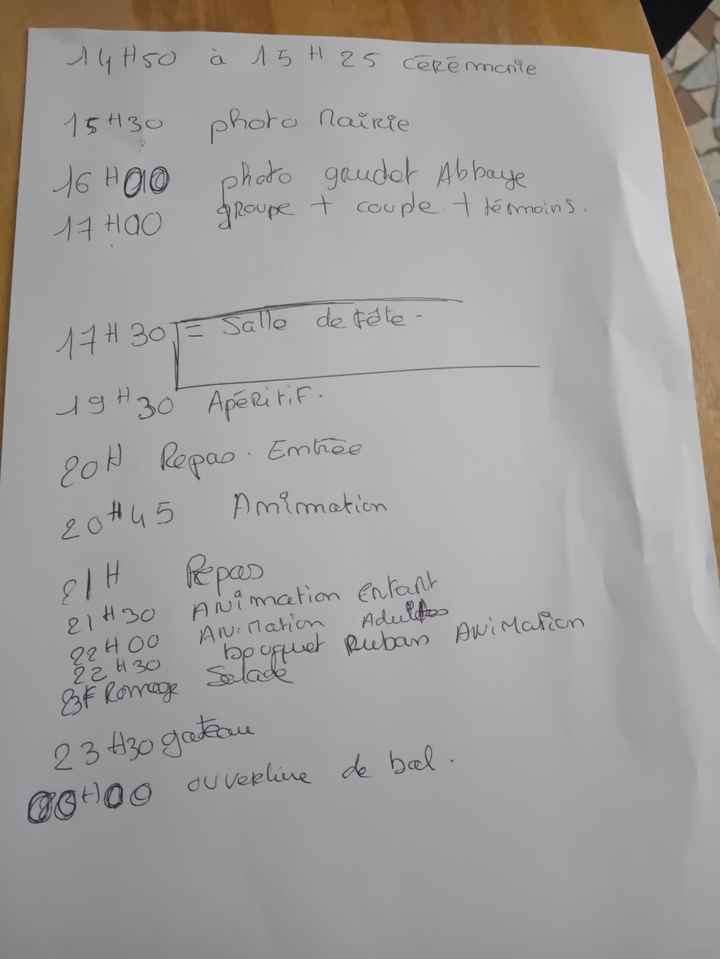 14H50 à 15H25 cérémonie
15H30 photo Mairie
16H00 photo gaudot Abbaye
17H00 groupe + couple + témoins.
17H30 = Salle de fête -
19H30 Apéritif.
20H Repas. Entrée
20H45 Animation
21H Repas
21H30 Animation Enfant
22H00 Animation Adultes
22H30 bouquet Ruban Animation
Fromage Salade
23H30 gateau
00H00 ouverture de bal.